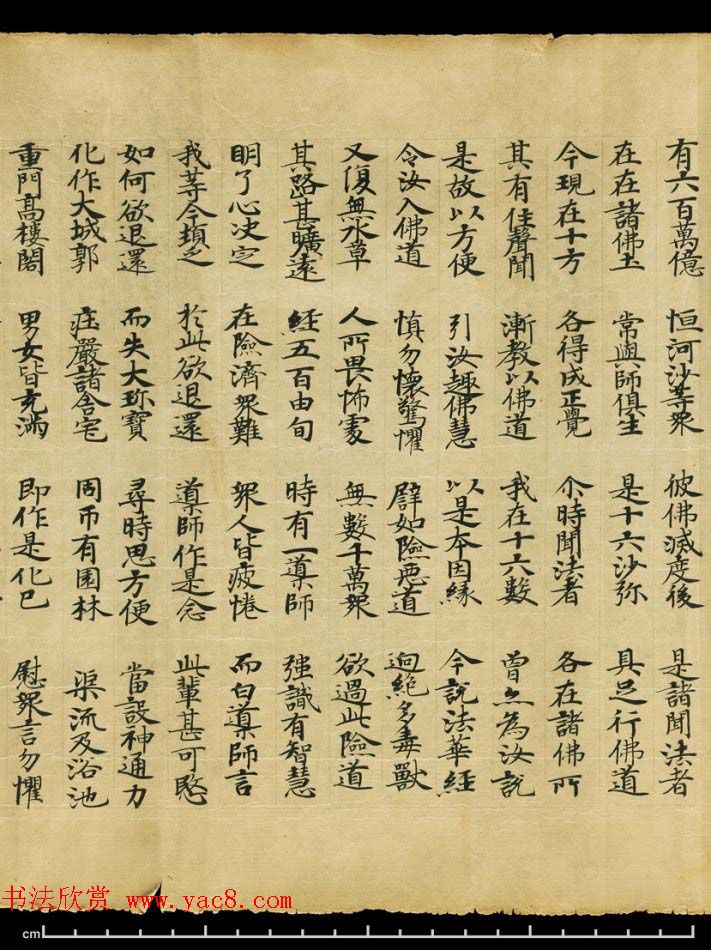 有六百萬億 恒河沙等衆 彼佛滅度後 是諸聞法者
在在諸佛土 常與師俱生 是十六沙弥 具足行佛道
今現在十方 各得成正覺 尒時聞法者 各在諸佛所
其有住聲聞 漸教以佛道 我在十六數 曾亦為汝説
是故以方便 引汝趣佛慧 以是夲因緣 今説法華經
令汝入佛道 慎勿懷驚懼 譬如險惡道 迥絶多毒獸
又復無水草 人所畏怖處 無數千萬衆 欲過此險道
其路甚曠遠 經五百由旬 時有一導師 強識有智慧
明了心决定 在險濟衆難 衆人皆疲惓 而白導師言
我等今頓乏 於此欲退還 導師作是念 此輩甚可愍
如何欲退還 而失大珎寶 尋時思方便 當設神通力
化作大城郭 庄嚴諸舍宅 周帀有園林 渠流及浴池
重門高樓閣 男女皆充滿 即作是化已 慰衆言勿懼
书法欣赏 www.yac8.com
cm